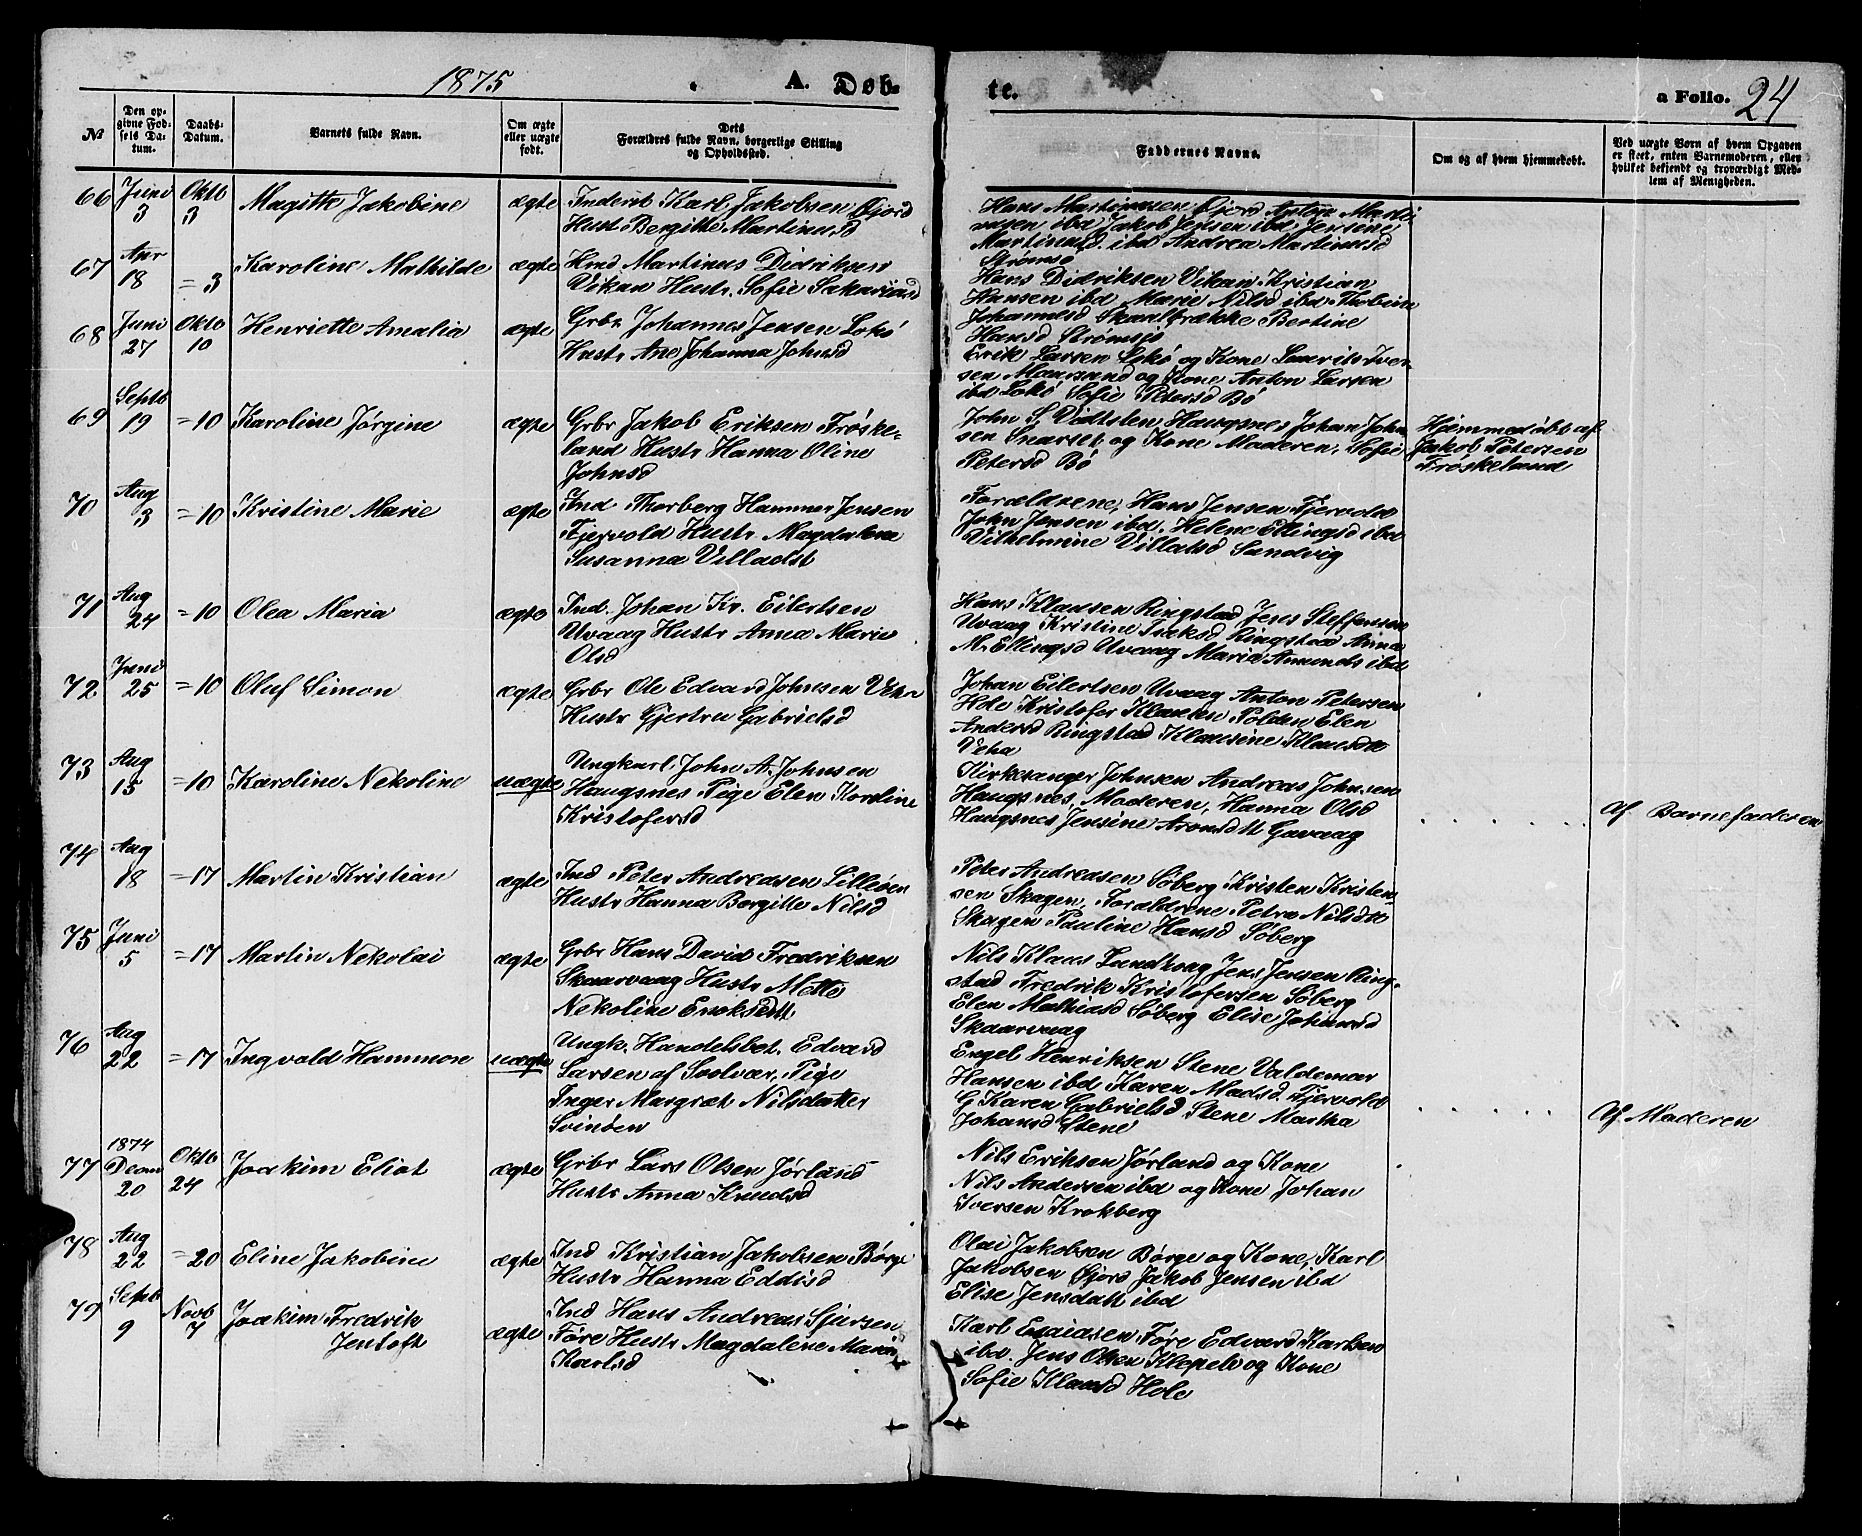 1875
A. Døb-
te.
a Folio. 24
№
Den op-
givne Fød-
sels Da-
tum.
Daabs-
Datum.
Barnets fulde Navn.
Om ægte
eller uægte
født.
Dets
Forældres fulde Navn, borgerlige Stilling
og Opholdssted.
Faddernes Navne.
Om og af hvem hjemmedøbt.
Ved uægte Børn af hvem Opgaven
er skeet, enten Barnemoderen, eller
hvilket bekjendt og troværdigt Med-
lem af Menigheden.
66 Juni 3 Oktb 3 Magitte Jakobine ægte Inderst Karl Jakobsen Gjord
Hust Bergitte Martinusd
Hans Martinusen Gjord Anton Marti
nusen ibd Jakob Jensen ibd Jensine
Martinusd. ibd Andrea Martinusd
Strømsø
67 Apr 18 = 3 Karoline Mathilde ægte Hmd Martinus Didriksen
Vikan Hustr. Sofie Sakariasd
Hans Didriksen Vikan Kristian
Hansen ibd Marie Nilsd ibd Thobine
Johannesd Skaltbrække Bertine
Hansd Strømsjø
68 Juni 27 Okto 10 Henriette Amalia ægte Grbr Johannes Jensen Lokø
Hustr Ane Johanna Johnsd
Erik Larsen Lokø og Kone Laurits Iver-
sen Maursund og Kone Anton Larsen
ibd Lokø Sofie Petersd Bø
69 Septb 19 = 10 Karoline Jørgine ægte Grbr Jakob Eriksen Frøske-
land Hustr Hanna Oline
Johnsd
John S Vidtsten Haugsnes Johan John
sen Snarset og Kone Moderen, Sofie
Petersd Bø
Hjemmedøbt af
Jakob Petersen
Frøskeland
70 Aug 3 = 10 Kristine Marie ægte Ind Thorberg Hammer Jensen
Fjervold Hustr. Magdalena
Susanna Villadst
Forældrene, Hans Jensen Fjervold
John Jensen ibd. Helene Ellingsd ibd
Vilhelmine Villatsd Sandvig
71 Aug 24 = 10 Olea Maria ægte Ind. Johan Kr. Eilertsen
Uvaag Hustr Anna Marie
Olsd
Hans Klausen Ringstad Jens Steffensen
Uvaag Kristine Isaksd Ringstad Anna
M. Ellingsd Uvaag Maria Amunds ibd
72 Juni 25 = 10 Oluf Simon ægte Grbr Ole Edvard Johnsen Veha
Hustr Gjertru Gabrielsd
Johan Eilertsen Uvaag Anton Petersen
Hole Kristofer Klausen Polden Elen
Andersd Ringstad Klausine Klausdtr
Veha
73 Aug 15 = 10 Karoline Nekoline uægte Ungkarl John A. Johnsen
Haugsnes Pige Elen Karoline
Kristofersd
Kirkesanger Johnsen Andreas Johnsen
Haugsnes, Moderen, Hanna Olsd
Haugsnes Jensine Aronsdtt Gavaag
Af Barnefaderen
74 Aug 18 = 17 Martin Kristian ægte Ind Peter Andreasen Lilleøen
Hustr Hanna Bergitte Nilsd
Peter Andreasen Søberg Kristen Kristen-
sen Skagen, Forældrene Petra Nilsdtr
Skagen Pauline Hansd Søberg
75 Juni 5 = 17 Martin Nekolai ægte Grbr Hans David Fredriksen
Skaarvaag Hustr Mette
Nekoline Enoksdtt
Nils Klaus Sandhaag Jens Jensen Ring-
stad Fredrik Kristofersen Søberg
Elen Mathiasd Søberg Elise Johansd
Skaarvaag
76 Aug 22 = 17 Ingvald Hammon uægte Ungk. Handelsbet. Edvard
Larsen af Svolvær, Pige
Inger Margret Nilsdatter
Svinøen
Engel Henriksen Stene Valdemar
Hansen ibd Karen Madsd Fjervold
G Karen Gabrielsd Stene Martha
Johansd Stene
Af Moderen
77 1874 Decm 20 Oktb 24 Joakim Eliot ægte Grbr Lars Olsen Jørland
Hustr Anna Knudsd
Nils Eriksen Jørland og Kone
Nils Andersen ibd og Kone Johan
Iversen Krokberg
78 Aug 22 = 20 Eline Jakobine ægte Ind Kristian Jakobsen Børge
Hustr Hanna Eddisd
Olai Jakobsen Børge og Kone, Karl
Jakobsen Gjord Jakob Jensen ibd
Elise Jensdatt ibd
79 Septb 9 Novb 7 Joakim Fredrik
Jentoft
ægte Ind Hans Andreas Sjursen
Føre Hustr Magdalene Maria
Karlsd
Karl Esaiasen Føre Edvard Karlsen
ibd. Jens Olsen Klepels og Kone
Sofie Klausd Hole